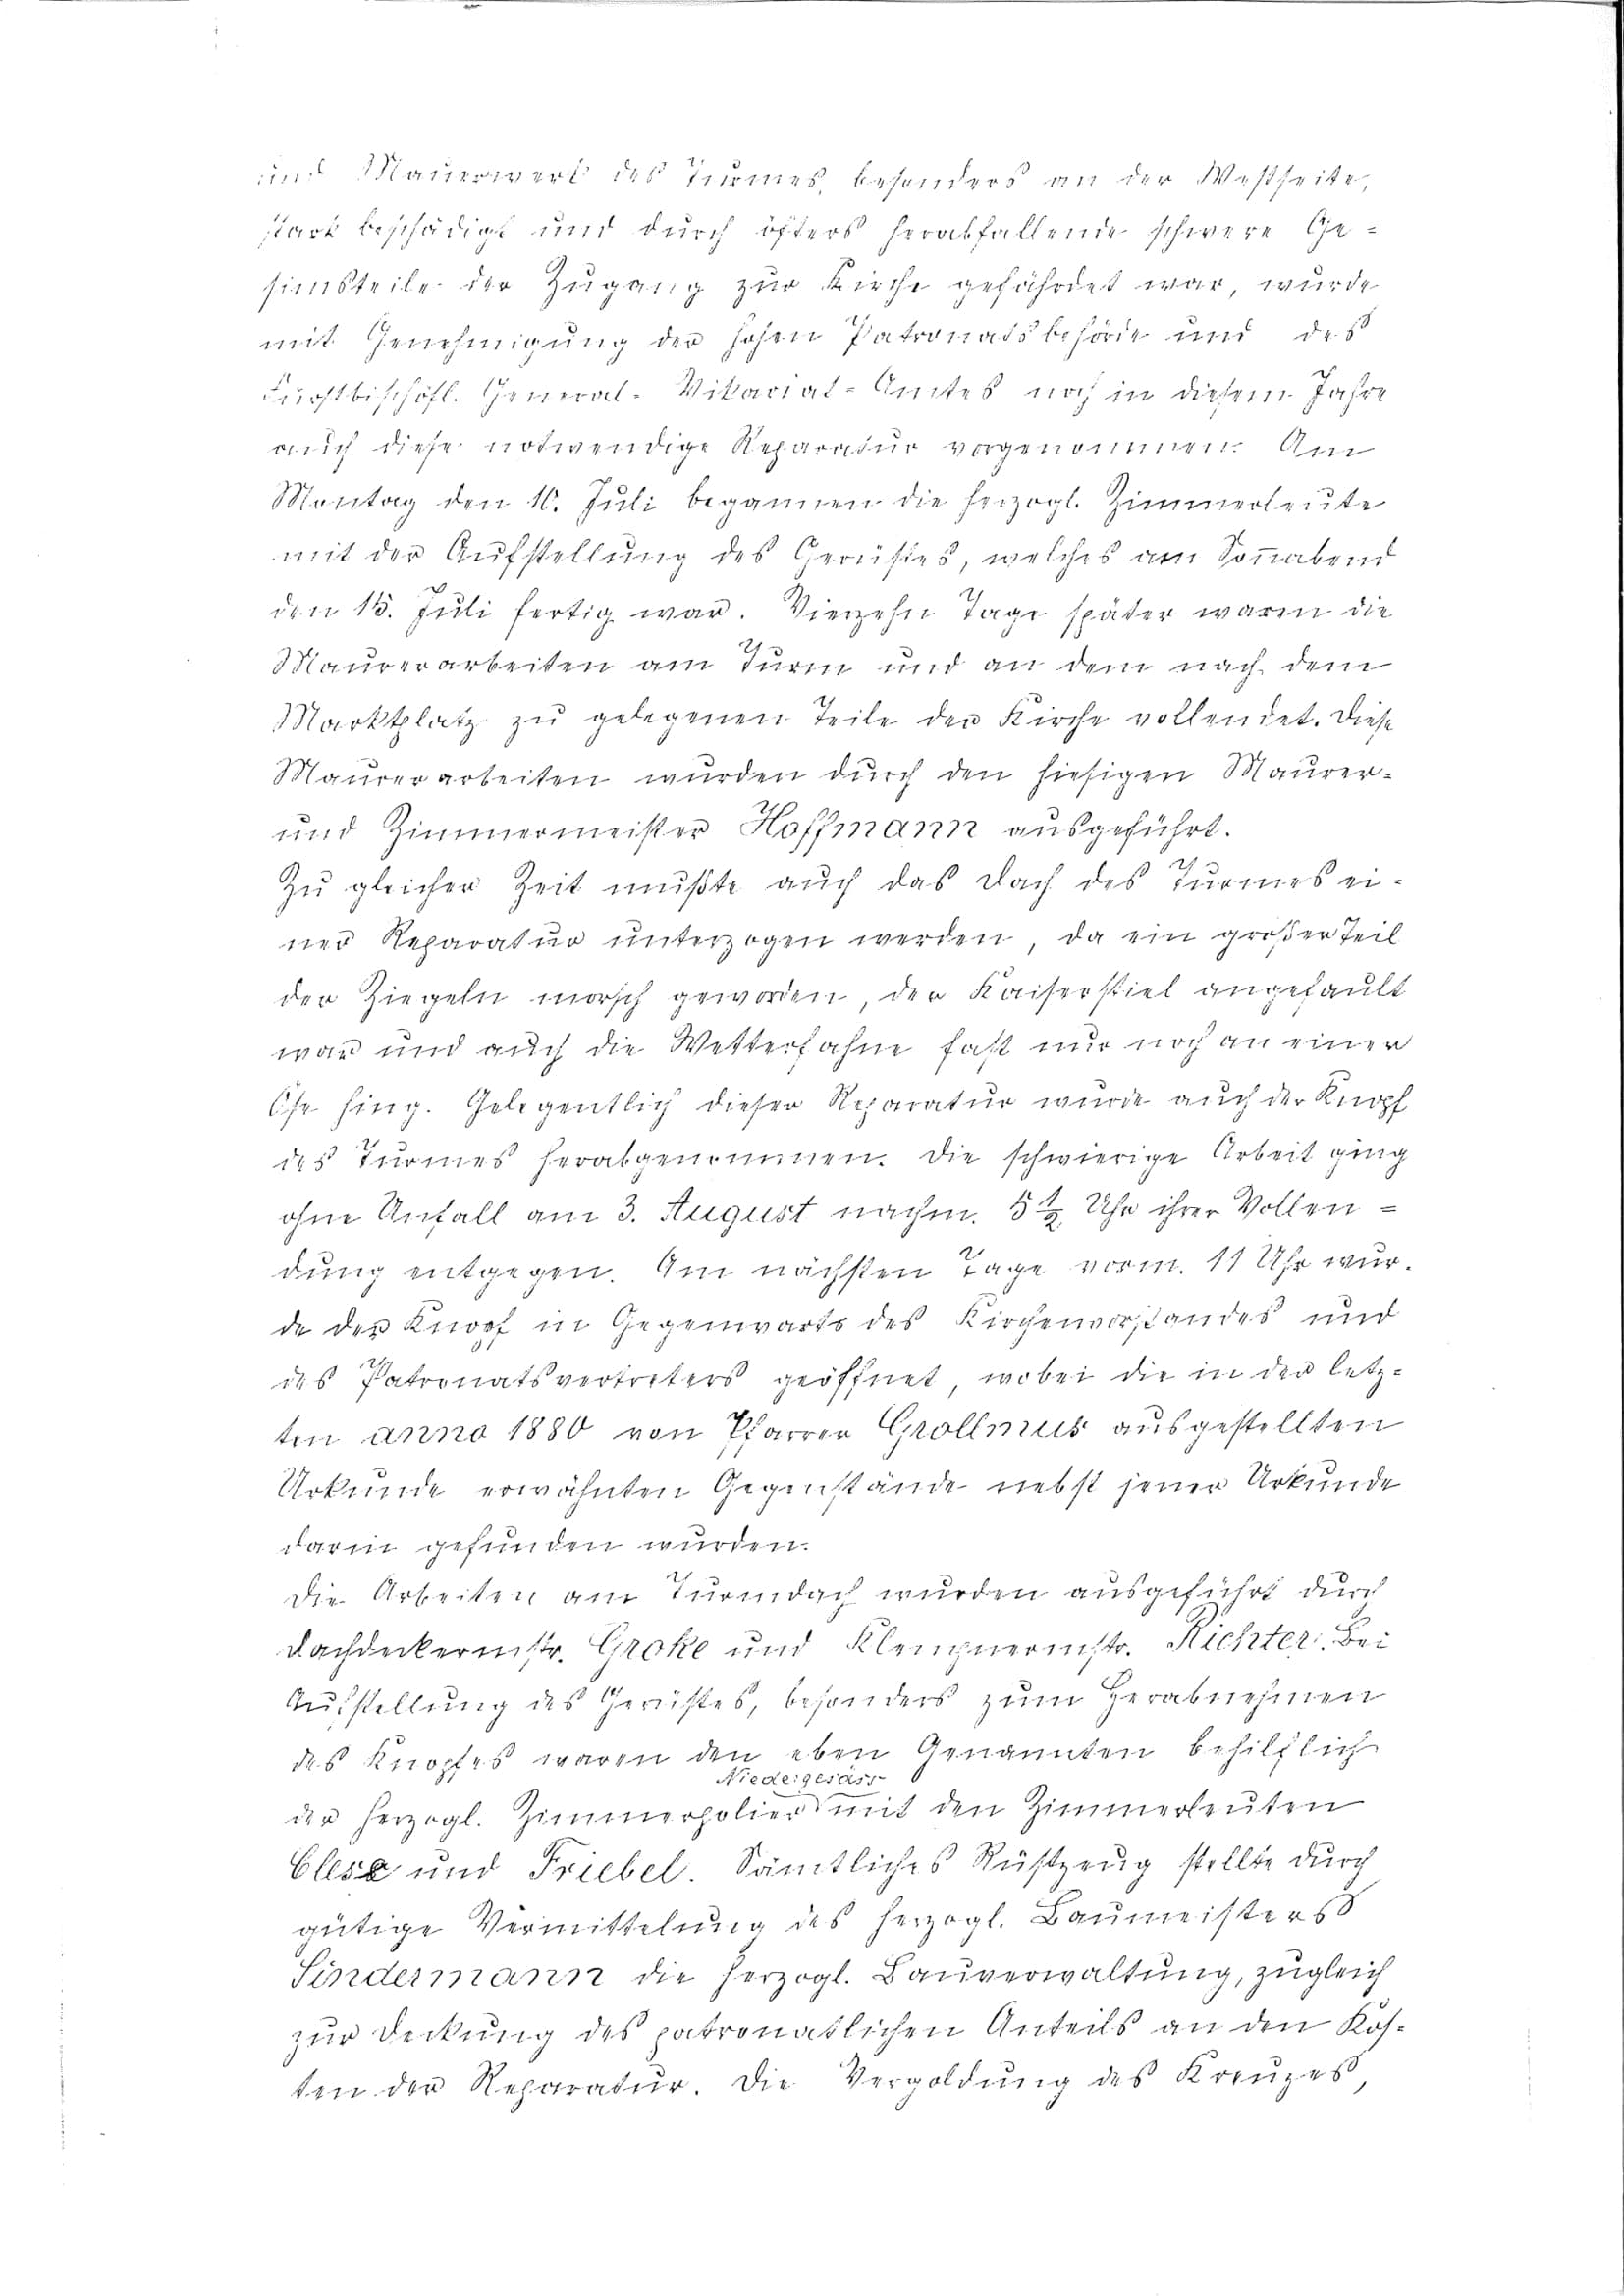 und Mauerwerk des Turmes, besonders an der Westseite,
stark beschädigt und durch öfters herabfallende schwere Ge-
simsteile der Zugang zur Kirche gefährdet war, wurde
mit Genehmigung der hohen Patronatsbehörde und des
Fürstbischöfl. General-Vikariat-Amtes noch in diesem Jahre
auch diese notwendige Reparatur vorgenommen. Am
Montag den 10. Juli begannen die herzogl. Zimmerleute
mit der Aufstellung des Gerüstes, welches am Soñabend
den 15. Juli fertig war. Vierzehn Tage später waren die
Maurerarbeiten am Turm und an dem nach dem
Marktplatz zu gelegenen Teile der Kirche vollendet. Diese
Maurerarbeiten wurden durch den hiesigen Maurer-
und Zimmermeister Hoffmann ausgeführt.
Zu gleicher Zeit mußte auch das Dach des Turmes ei-
ner Reparatur unterzogen werden, da ein großer Teil
der Ziegeln morsch geworden, der Kaiserstiel angefault
war und auch die Wetterfahne fast nur noch an einer
Öse hing. Gelegentlich dieser Reparatur wurde auch der Knopf
des Turmes herabgenommen. Die schwierige Arbeit ging
ohne Unfall am 3. August nachm. 5 1/2 Uhr ihrer Vollen-
dung entgegen. Am nächsten Tage vorm. 11 Uhr wur-
de der Knopf in Gegenwarts des Kirchenvorstandes und
des Patronatsvertreters geöffnet, wobei die in der letz-
ten anno 1880 von Pfarrer Grollmus ausgestellten
Urkunde erwähnten Gegenstände nebst jener Urkunde
darin gefunden wurden.
Die Arbeiten am Turmdach wurden ausgeführt durch
Dachdeckermstr. Groke und Klempnermstr. Richter. Bei
Aufstellung des Gerüstes, besonders zum Herabnehmen
des Knopfes waren den eben Genannten behilflich
Niedergesäss
der herzogl. Zimmerpolier mit den Zimmerleuten
und Friebel. Sämtliches Rüstzeug stellte durch
gütige Vermittelung des herzogl. Baumeisters
Sindermann die herzogl. Bauverwaltung, zugleich
zur Deckung des patronatlichen Anteils an den Kos-
ten der Reparatur. Die Vergoldung des Kreuzes,